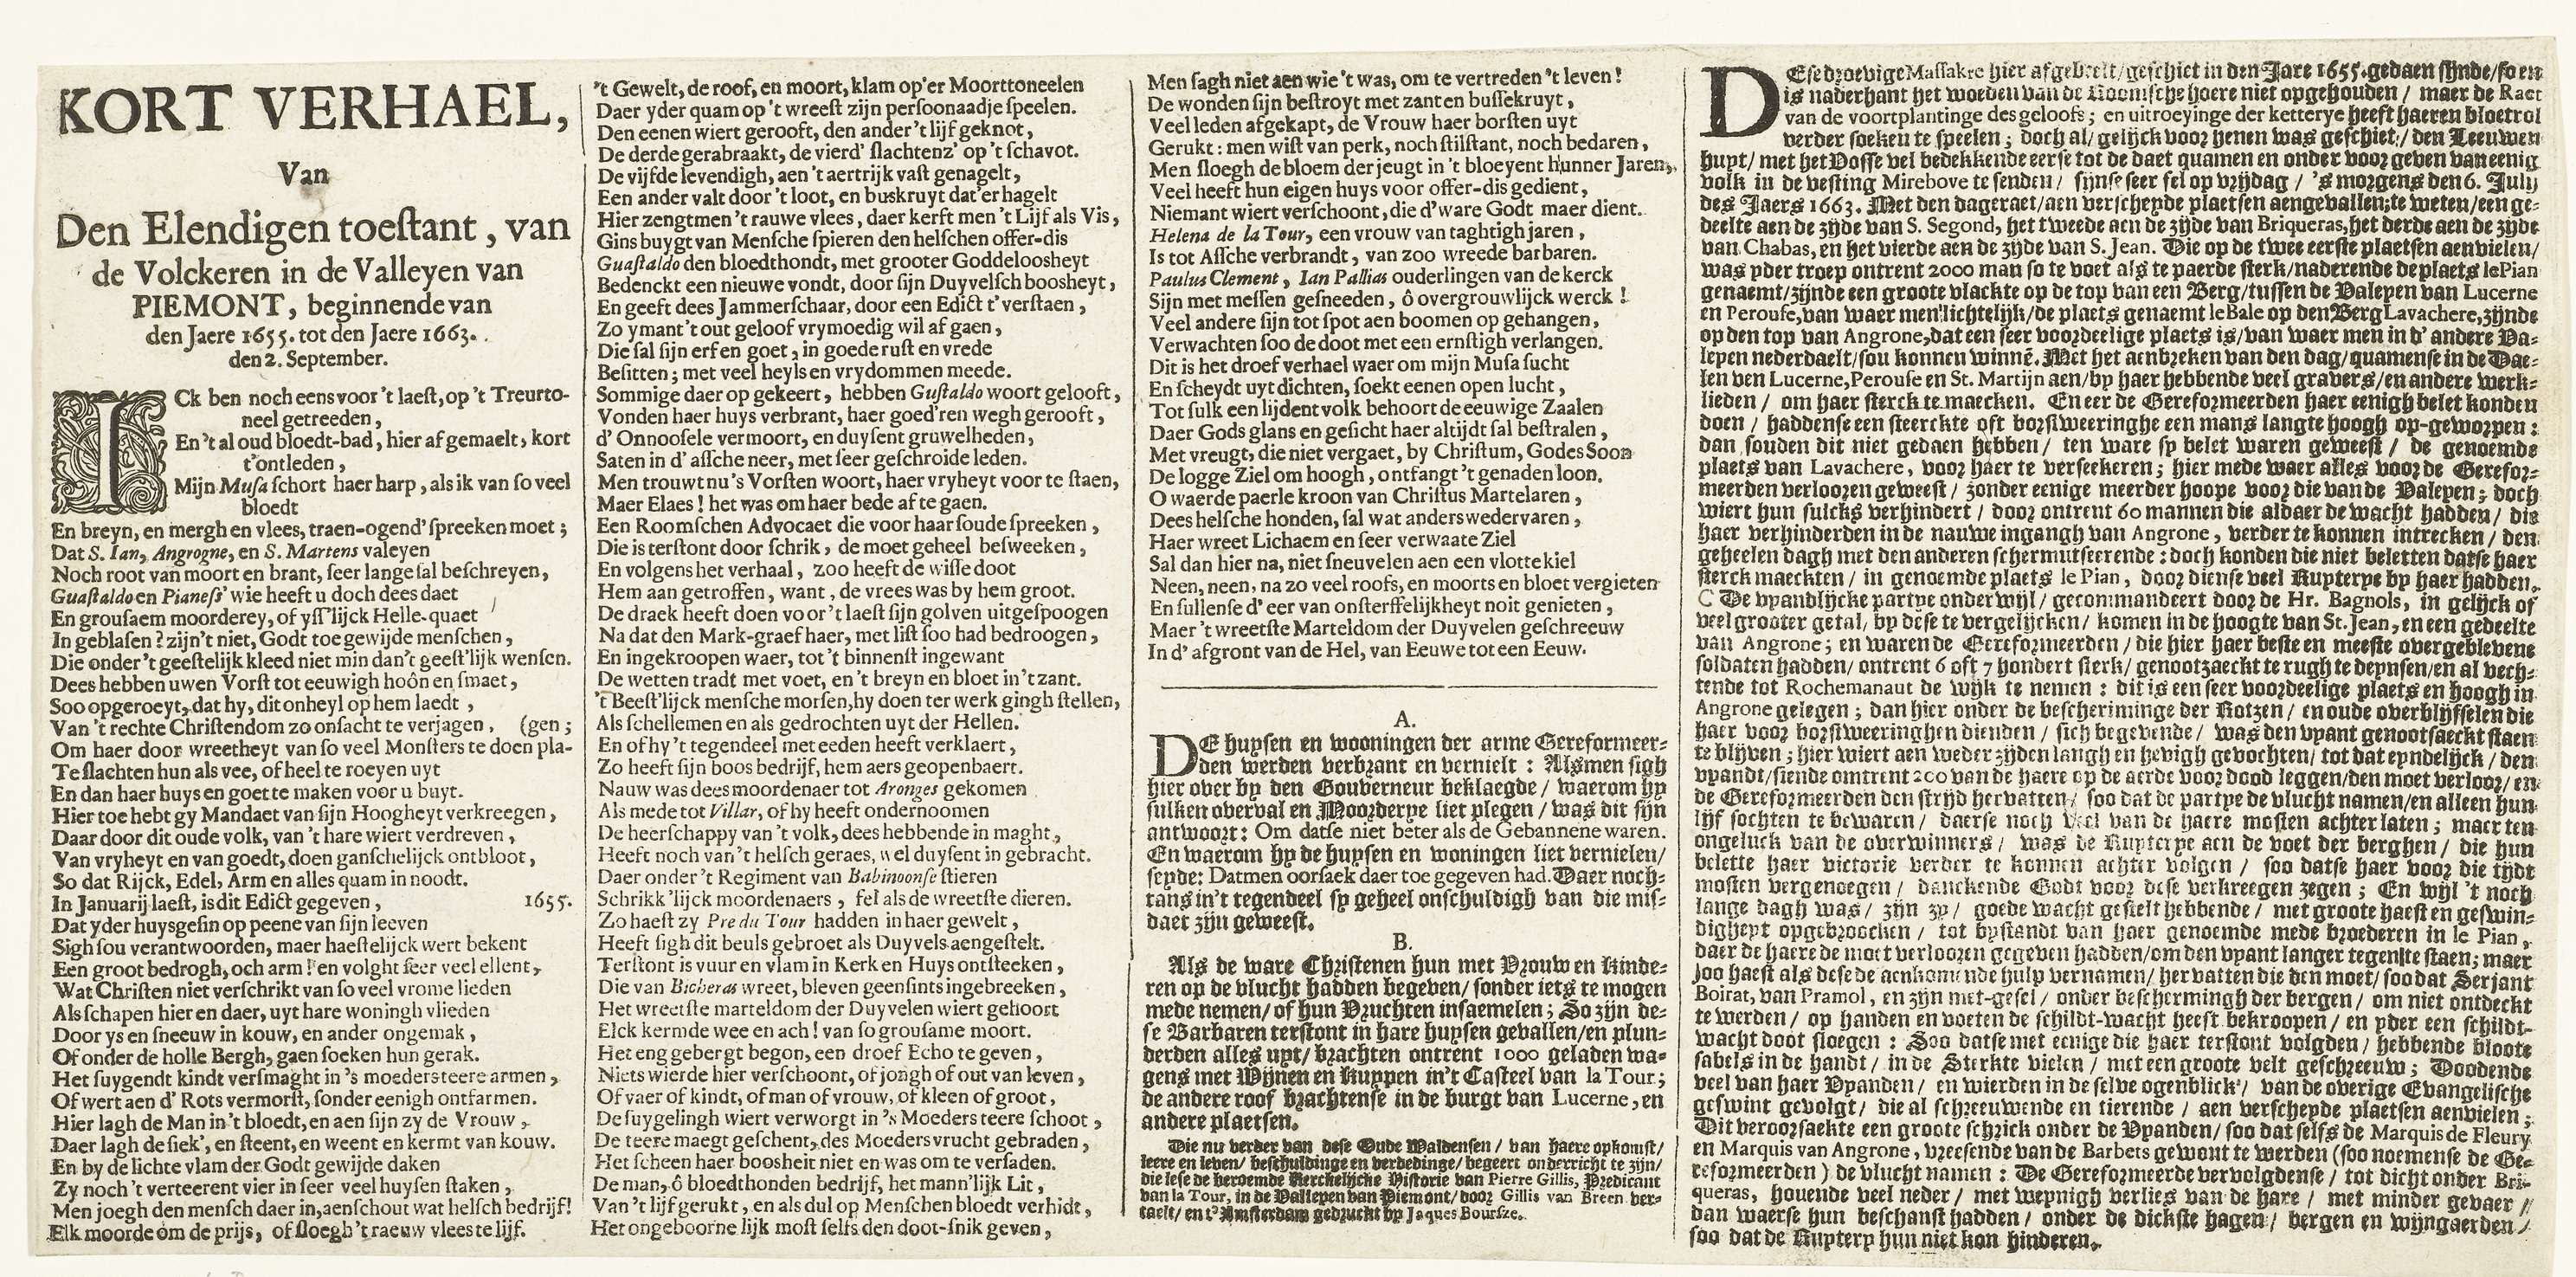 KORT VERHAEL,
Van
Den Elendigen toeſtant, van
de Volckeren in de Valleyen van
PIEMONT, beginnende van
den Jaere 1655. tot den Jaere 1663.
den 2. September.
ICk ben noch eens voor 't laeſt, op 't Treurto-
neel getreeden,
En 't al oud bloedt-bad, hier afgemaelt, kort
t'ontleden,
Mijn Muſa ſchort haer harp, als ik van ſo veel
bloedt
En breyn, en mergh en vlees, traen-ogend' ſpreeken moet;
Dat S. Ian, Angrogne, en S. Martens valeyen
Noch root van moort en brant, ſeer lange ſal beſchreyen,
Guaſtaldo en Pianeſſ' wie heeft u doch dees daet
En grouſaem moorderey, of yſſ'lijck Helle-quaet
In geblaſen? zijn't niet, Godt toegewijde menſchen,
Die onder 't geeſtelijk kleed niet min dan't geeſt'lijk wenſen.
Dees hebben uwen Vorſt tot eeuwigh hoôn en ſmaet,
Soo opgeroeyt, dat hy, dit onheyl op hem laedt,
Van 't rechte Chriſtendom zo onſacht te verjagen, (gen;
Om haer door wreetheyt van ſo veel Monſters te doen pla-
Te ſlachten hun als vee, of heel te roeyen uyt
En dan haer huys en goet te maken voor u buyt.
Hier toe hebt gy Mandaet van ſijn Hoogheyt verkreegen,
Daar door dit oude volk, van 't hare wiert verdreven,
Van vryheyt en van goedt, doen ganſchelijck ontbloot,
So dat Rijck, Edel, Arm en alles quam in noodt.
In Januarij laeſt, is dit Edict gegeven, 1655.
Dat yder huysgeſin op peene van ſijn leeven
Sigh ſou verantwoorden, maer haeſtelijck wert bekent
Een groot bedrogh, och arm! en volght ſeer veel ellent,
Wat Chriſten niet verſchrikt van ſo veel vrome lieden
Als ſchapen hier en daer, uyt hare woningh vlieden
Door ys en ſneeuw in kouw, en ander ongemak,
Of onder de holle Bergh, gaen ſoeken hun gerak.
Het ſuygendt kindt verſmaght in 's moeders teere armen,
Of wert aen d' Rots vermorſt, ſonder eenigh ontfarmen.
Hier lagh de Man in 't bloedt, en aen ſijn zy de Vrouw,
Daer lagh de ſiek', en ſteent, en weent en kermt van kouw.
En by de lichte vlam der Godt gewijde daken
Zy noch 't verteerent vier in ſeer veel huyſen ſtaken,
Men joegh den menſch daer in, aenſchout wat helſch bedrijf!
Elk moorde óm de prijs, of ſloegh 't raeuw vlees te lijf.
't Gewelt, de roof, en moort, klam op'er Moorttoneelen
Daer yder quam op 't wreeſt zijn perſoonaadje ſpeelen.
Den eenen wiert gerooft, den ander 't lijf geknot,
De derde gerabraakt, de vierd' ſlachtenz' op 't ſchavot.
De vijfde levendigh, aen 't aertrijk vaſt genagelt,
Een ander valt door 't loot, en buskruyt dat'er hagelt
Hier zengtmen 't rauwe vlees, daer kerft men 't Lijf als Vis,
Gins buygt van Menſche ſpieren den helſchen offer-dis
Guaſtaldo den bloedthondt, met grooter Goddeloosheyt
Bedenckt een nieuwe vondt, door ſijn Duyvelſch boosheyt,
En geeft dees Jammerſchaar, door een Edict t' verſtaen,
Zo ymant 't out geloof vrymoedig wil af gaen,
Die ſal ſijn erf en goet, in goede ruſt en vrede
Beſitten; met veel heyls en vrydommen meede.
Sommige daer op gekeert, hebben Guſtaldo woort gelooft,
Vonden haer huys verbrant, haer goed'ren wegh gerooft,
d' Onnooſele vermoort, en duyſent gruwelheden,
Saten in d' aſſche neer, met ſeer geſchroide leden.
Men trouwt nu 's Vorſten woort, haer vryheyt voor te ſtaen,
Maer Elaes! het was om haer bede af te gaen.
Een Roomſchen Advocaet die voor haar ſoude ſpreeken,
Die is terſtont door ſchrik, de moet geheel beſweeken,
En volgens het verhaal, zoo heeft de wiſſe doot
Hem aan getroffen, want, de vrees was by hem groot.
De draek heeft doen voor 't laeſt ſijn golven uitgeſpoogen
Na dat den Mark-graef haer, met liſt ſoo had bedroogen,
En ingekroopen waer, tot 't binnenſt ingewant
De wetten tradt met voet, en 't breyn en bloet in 't zant.
't Beeſt'lijck menſche morſen, hy doen ter werk gingh ſtellen,
Als ſchellemen en als gedrochten uyt der Hellen.
En of hy 't tegendeel met eeden heeft verklaert,
Zo heeft ſijn boos bedrijf, hem aers geopenbaert.
Nauw was dees moordenaer tot Aronges gekomen
Als mede tot Villar, of hy heeft ondernoomen
De heerſchappy van 't volk, dees hebbende in maght,
Heeft noch van 't helſch geraes, wel duyſent in gebracht.
Daer onder 't Regiment van Babinoonſe ſtieren
Schrikk'lijck moordenaers, fel als de wreetſte dieren.
Zo haeſt zy Pre du Tour hadden in haer gewelt,
Heeft ſigh dit beuls gebroet als Duyvels aengeſtelt.
Terſtont is vuur en vlam in Kerk en Huys ontſteeken,
Die van Bicheras wreet, bleven geenſints ingebreeken,
Het wreetſte marteldom der Duyvelen wiert gehoort
Elck kermde wee en ach! van ſo grouſame moort.
Het eng gebergt begon, een droef Echo te geven,
Niets wierde hier verſchoont, of jongh of out van leven,
Of vaer of kindt, of man of vrouw, of kleen of groot,
De ſuygelingh wiert verworgt in 's Moeders teere ſchoot,
De teere maegt geſchent, des Moeders vrucht gebraden,
Het ſcheen haer boosheit niet en was om te verſaden.
De man, ô bloedthonden bedrijf, het mann'lijk Lit,
Van 't lijf gerukt, en als dul op Menſchen bloedt verhidt,
Het ongeboorne lijk moſt ſelfs den doot-ſnik geven,
Men ſagh niet aen wie 't was, om te vertreden 't leven!
De wonden ſijn beſtroyt met zant en buſſekruyt,
Veel leden afgekapt, de Vrouw haer borſten uyt
Gerukt: men wiſt van perk, noch ſtilſtant, noch bedaren,
Men ſloegh de bloem der jeugt in 't bloeyent hunner Jaren,
Veel heeft hun eigen huys voor offer-dis gedient,
Niemant wiert verſchoont, die d'ware Godt maer dient.
Helena de la Tour, een vrouw van taghtigh jaren,
Is tot Aſſche verbrandt, van zoo wreede barbaren.
Paulus Clement, Ian Pallias ouderlingen van de kerck
Sijn met meſſen geſneeden, ô overgrouwlijck werck!
Veel andere ſijn tot ſpot aen boomen op gehangen,
Verwachten ſoo de doot met een ernſtigh verlangen.
Dit is het droef verhael waer om mijn Muſa ſucht
En ſcheydt uyt dichten, ſoekt eenen open lucht,
Tot ſulk een lijdent volk behoort de eeuwige Zaalen
Daer Gods glans en geſicht haer altijdt ſal beſtralen,
Met vreugt, die niet vergaet, by Chriſtum, Godes Soon
De logge Ziel om hoogh, ontfangt 't genaden loon.
O waerde paerle kroon van Chriſtus Martelaren,
Dees helſche honden, ſal wat anders wedervaren,
Haer wreet Lichaem en ſeer verwaate Ziel
Sal dan hier na, niet ſneuvelen aen een vlotte kiel
Neen, neen, na zo veel roofs, en moorts en bloet vergieten
En ſullenſe d' eer van onſterffelijkheyt noit genieten,
Maer 't wreetſte Marteldom der Duyvelen geſchreeuw
In d' afgront van de Hel, van Eeuwe tot een Eeuw.
A.
DE huyſen en wooningen der arme Gereformeer-
den werden verbrant en vernielt: Alsmen ſigh
hier over by den Gouverneur beklaegde/ waerom hy
ſulken overval en Moorderye liet plegen/ was dit ſijn
antwoort: Om datſe niet beter als de Gebannene waren.
En waerom hy de huyſen en woningen liet vernielen/
ſeyde: Datmen oorſaek daer toe gegeven had. Daer noch-
tans in't tegendeel ſy geheel onſchuldigh van die miſ-
daet zijn geweeſt.
B.
Als de ware Chriſtenen hun met Vrouw en Kinde-
ren op de vlucht hadden begeven/ ſonder iets te mogen
mede nemen/ of hun Vruchten inſaemelen; So zijn de-
ſe Barbaren terſtont in hare huyſen gevallen/ en plun-
derden alles uyt/ brachten ontrent 1000 geladen wa-
gens met Wijnen en Kuypen in't Caſteel van la Tour;
de andere roof brachtenſe in de burgt van Lucerne, en
andere plaetſen.
Die nu verder van deſe Oude Waldenſen/ van haere opkomſt/
leere en leven/ beſchuldinge en verdedinge/ begeert onderricht te zijn/
die leſe de beroemde Kerckelijcke Hiſtorie van Pierre Gillis, Predicant
van la Tour, in de Valleyen van Piemont/ door Gillis van Breen ver-
taelt/ en t'Amſterdam gedruckt by Jaques Bourſze.
DEſe droevige Maſſakre hier afgebeelt/ geſchiet in den Jare 1655. gedaen ſijnde/ ſo en
is naderhant het woeden van de Roomſche hoere niet opgehouden/ maer de Raet
van de voortplantinge des geloofs; en uitroeyinge der ketterye heeft haeren bloetrol
verder ſoeken te ſpeelen; doch al/ gelijck voor henen was geſchiet/ den Leeuwen
huyt/ met het Voſſe vel bedekkende eerſe tot de daet quamen en onder voorgeven van eenig
volk in de veſting Mirebove te ſenden/ ſijnſe ſeer fel op vrijdag/ 's morgens den 6. July
des Jaers 1663. Met den dageraet/ aen verſcheyde plaetſen aengevallen; te weten/ een ge-
deelte aen de zijde van S. Segond, het tweede aen de zijde van Briqueras, het derde aen de zijde
van Chabas, en het vierde aen de zijde van S. Jean. Die op de twee eerſte plaetſen aenvielen/
was yder troep ontrent 2000 man ſo te voet als te paerde ſterk/ naderende de plaets le Pian
genaemt/ zijnde een groote vlackte op de top van een Berg/ tuſſen de Valeyen van Lucerne
en Perouſe, van waer men lichtelijk/ de plaets genaemt le Bale op den Berg Lavachere, zijnde
op den top van Angrone, dat een ſeer voordeelige plaets is/ van waer men in d' andere Va-
leyen nederdaelt/ ſou konnen winnē. Met het aenbreken van den dag/ quamenſe in de Vae-
len ven Lucerne, Perouſe en St. Martijn aen/ by haer hebbende veel gravers/ en andere werk-
lieden/ om haer ſterck te maecken. En eer de Gereformeerden haer eenigh belet konden
doen/ haddenſe een ſteerckte oft borſtweeringhe een mans langte hoogh op-geworpen:
dan ſouden dit niet gedaen hebben/ ten ware ſy belet waren geweeſt/ de genoemde
plaets van Lavachere, voor haer te verſeekeren; hier mede waer alles voor de Gerefor-
meerden verlooren geweeſt/ zonder eenige meerder hoope voor die van de Valeyen; doch
wiert hun ſulcks verhindert/ door ontrent 60 mannen die aldaer de wacht hadden/ die
haer verhinderden in de nauwe ingangh van Angrone, verder te konnen intrecken/ den
geheelen dagh met den anderen ſchermutſeerende: doch konden die niet beletten datſe haer
ſterck maeckten/ in genoemde plaets le Pian, door dienſe veel Ruyterye by haer hadden.
C De vyandlijcke partye onderwijl/ gecommandeert door de Hr. Bagnols, in gelijck of
veel grooter getal/ by deſe te vergelijcken/ komen in de hoogte van St. Jean, en een gedeelte
van Angrone; en waren de Gereformeerden/ die hier haer beſte en meeſte overgeblevene
ſoldaten hadden/ ontrent 6 oft 7 hondert ſterk/ genootzaeckt te rugh te deynſen/ en al vech-
tende tot Rochemanaut de wijk te nemen: dit is een ſeer voordeelige plaets en hoogh in
Angrone gelegen; dan hier onder de beſcherminge der Rotzen/ en oude overblijfſelen die
haer voor borſtweeringhen dienden/ ſich begevende/ was den vyant genootſaeckt ſtaen
te blijven; hier wiert aen weder zijden langh en hevigh gevochten/ tot dat eyndelijck/ den
vyandt/ ſiende omtrent 200 van de haere op de aerde voor dood leggen/ den moet verloor/ en
de Gereformeerden den ſtrijd hervatten/ ſoo dat de partye de vlucht namen/ en alleen hun
lijf ſochten te bewaren/ daerſe noch veel van de haere moſten achter laten; maer ten
ongeluck van de overwinners/ was de Ruyterye aen de voet der berghen/ die hun
belette haer victorie verder te konnen achter volgen/ ſoo datſe haer voor die tijdt
moſten vergenoegen/ danckende Godt voor deſe verkreegen zegen; En wijl 't noch
lange dagh was/ zijn zy/ goede wacht geſtelt hebbende/ met groote haeſt en geſwin-
digheyt opgebroocken/ tot byſtandt van haer genoemde mede broederen in le Pian,
daer de haere de moet verlooren gegeven hadden/ om den vyant langer tegen te ſtaen; maer
zoo haeſt als deſe de aenkomende hulp vernamen/ hervatten die den moet/ ſoo dat Serjant
Boirat, van Pramol, en zijn met-geſel/ onder beſchermingh der bergen/ om niet ontdeckt
te werden/ op handen en voeten de ſchildt-wacht heeft bekroopen/ en yder een ſchildt-
wacht doot ſloegen: Soo datſe met eenige die haer terſtont volgden/ hebbende bloote
ſabels in de handt/ in de Sterkte vielen/ met een groote velt geſchreeuw; Doodende
veel van haer Vyanden/ en wierden in de ſelve ogenblick/ van de overige Evangeliſche
geſwint gevolgt/ die al ſchreeuwende en tierende/ aen verſcheyde plaetſen aenvielen;
Dit veroorſaekte een groote ſchrick onder de Vyanden/ ſoo dat ſelfs de Marquis de Fleury
en Marquis van Angrone, vreeſende van de Barbets gewont te werden (ſoo noemenſe de Ge-
reformeerden) de vlucht namen: De Gereformeerde vervolgdenſe/ tot dicht onder Bri-
queras, houende veel neder/ met weynigh verlies van de hare/ met minder gevaer//
dan waerſe hun beſchanſt hadden/ onder de dickſte hagen/ bergen en wijngaerden/
ſoo dat de Ruytery hun niet kon hinderen.